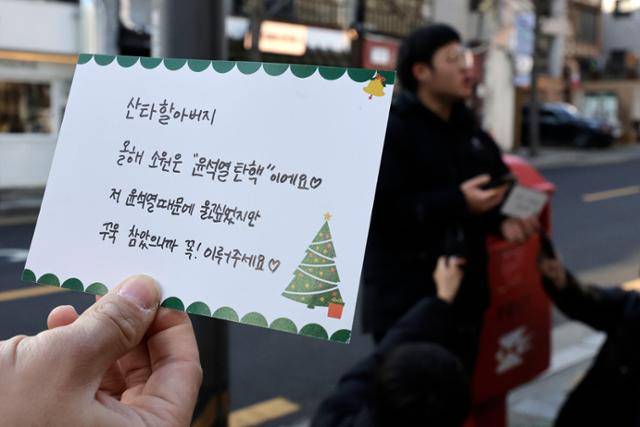 산타할아버지
올해 소원은 "윤석열 탄핵"이에요♡
저 윤석열때문에 울고싶었지만
꾸욱 참았으니까 꼭! 이뤄주세요♡